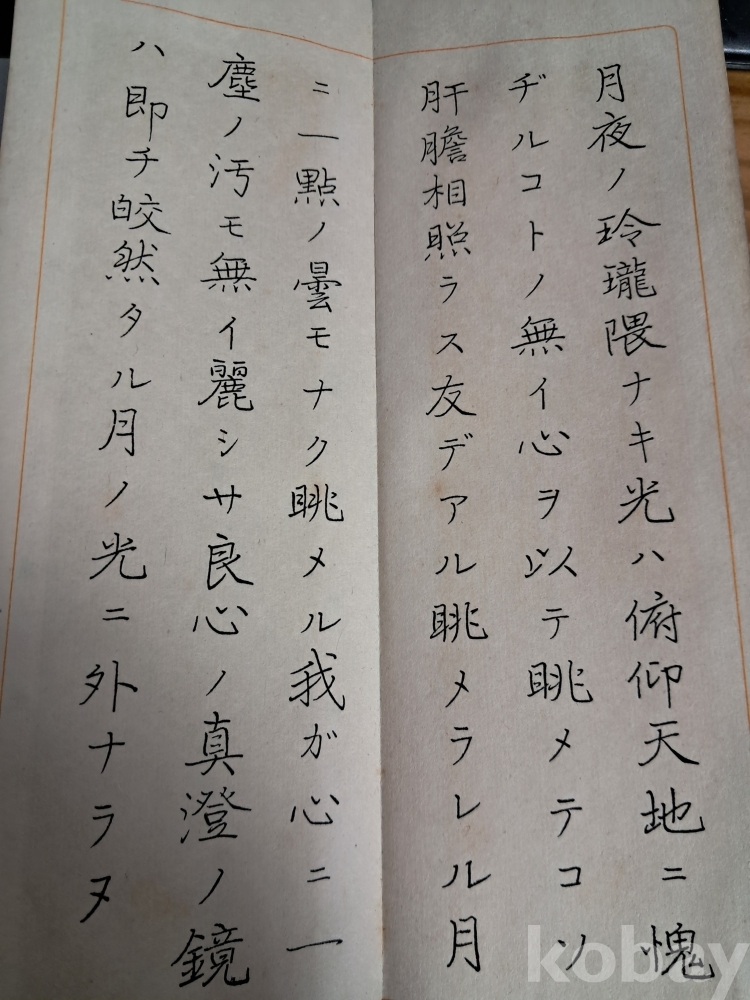 月夜ノ玲瓏隈ナキ光ハ俯仰天地ニ愧
ヂルコトノ無イ心ヲ以テ眺メテコソ
肝膽相照ラス友デアル眺メラレル月
ニ一點ノ曇モナク眺メル我ガ心ニ一
塵ノ汚モ無イ麗シサ良心ノ真澄ノ鏡
ハ即チ皎然タル月ノ光ニ外ナラヌ
kobay